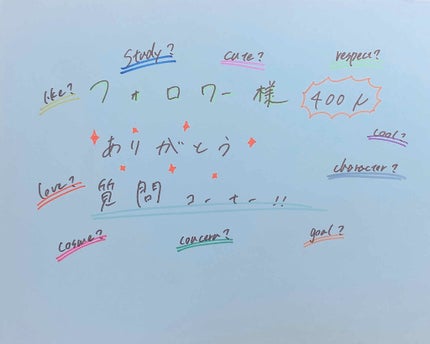 study? cute? respect?
like? フォロワー様 400人
ありがとう cool?
character?
love? 質問コーナー!!
cosme? concern? goal?